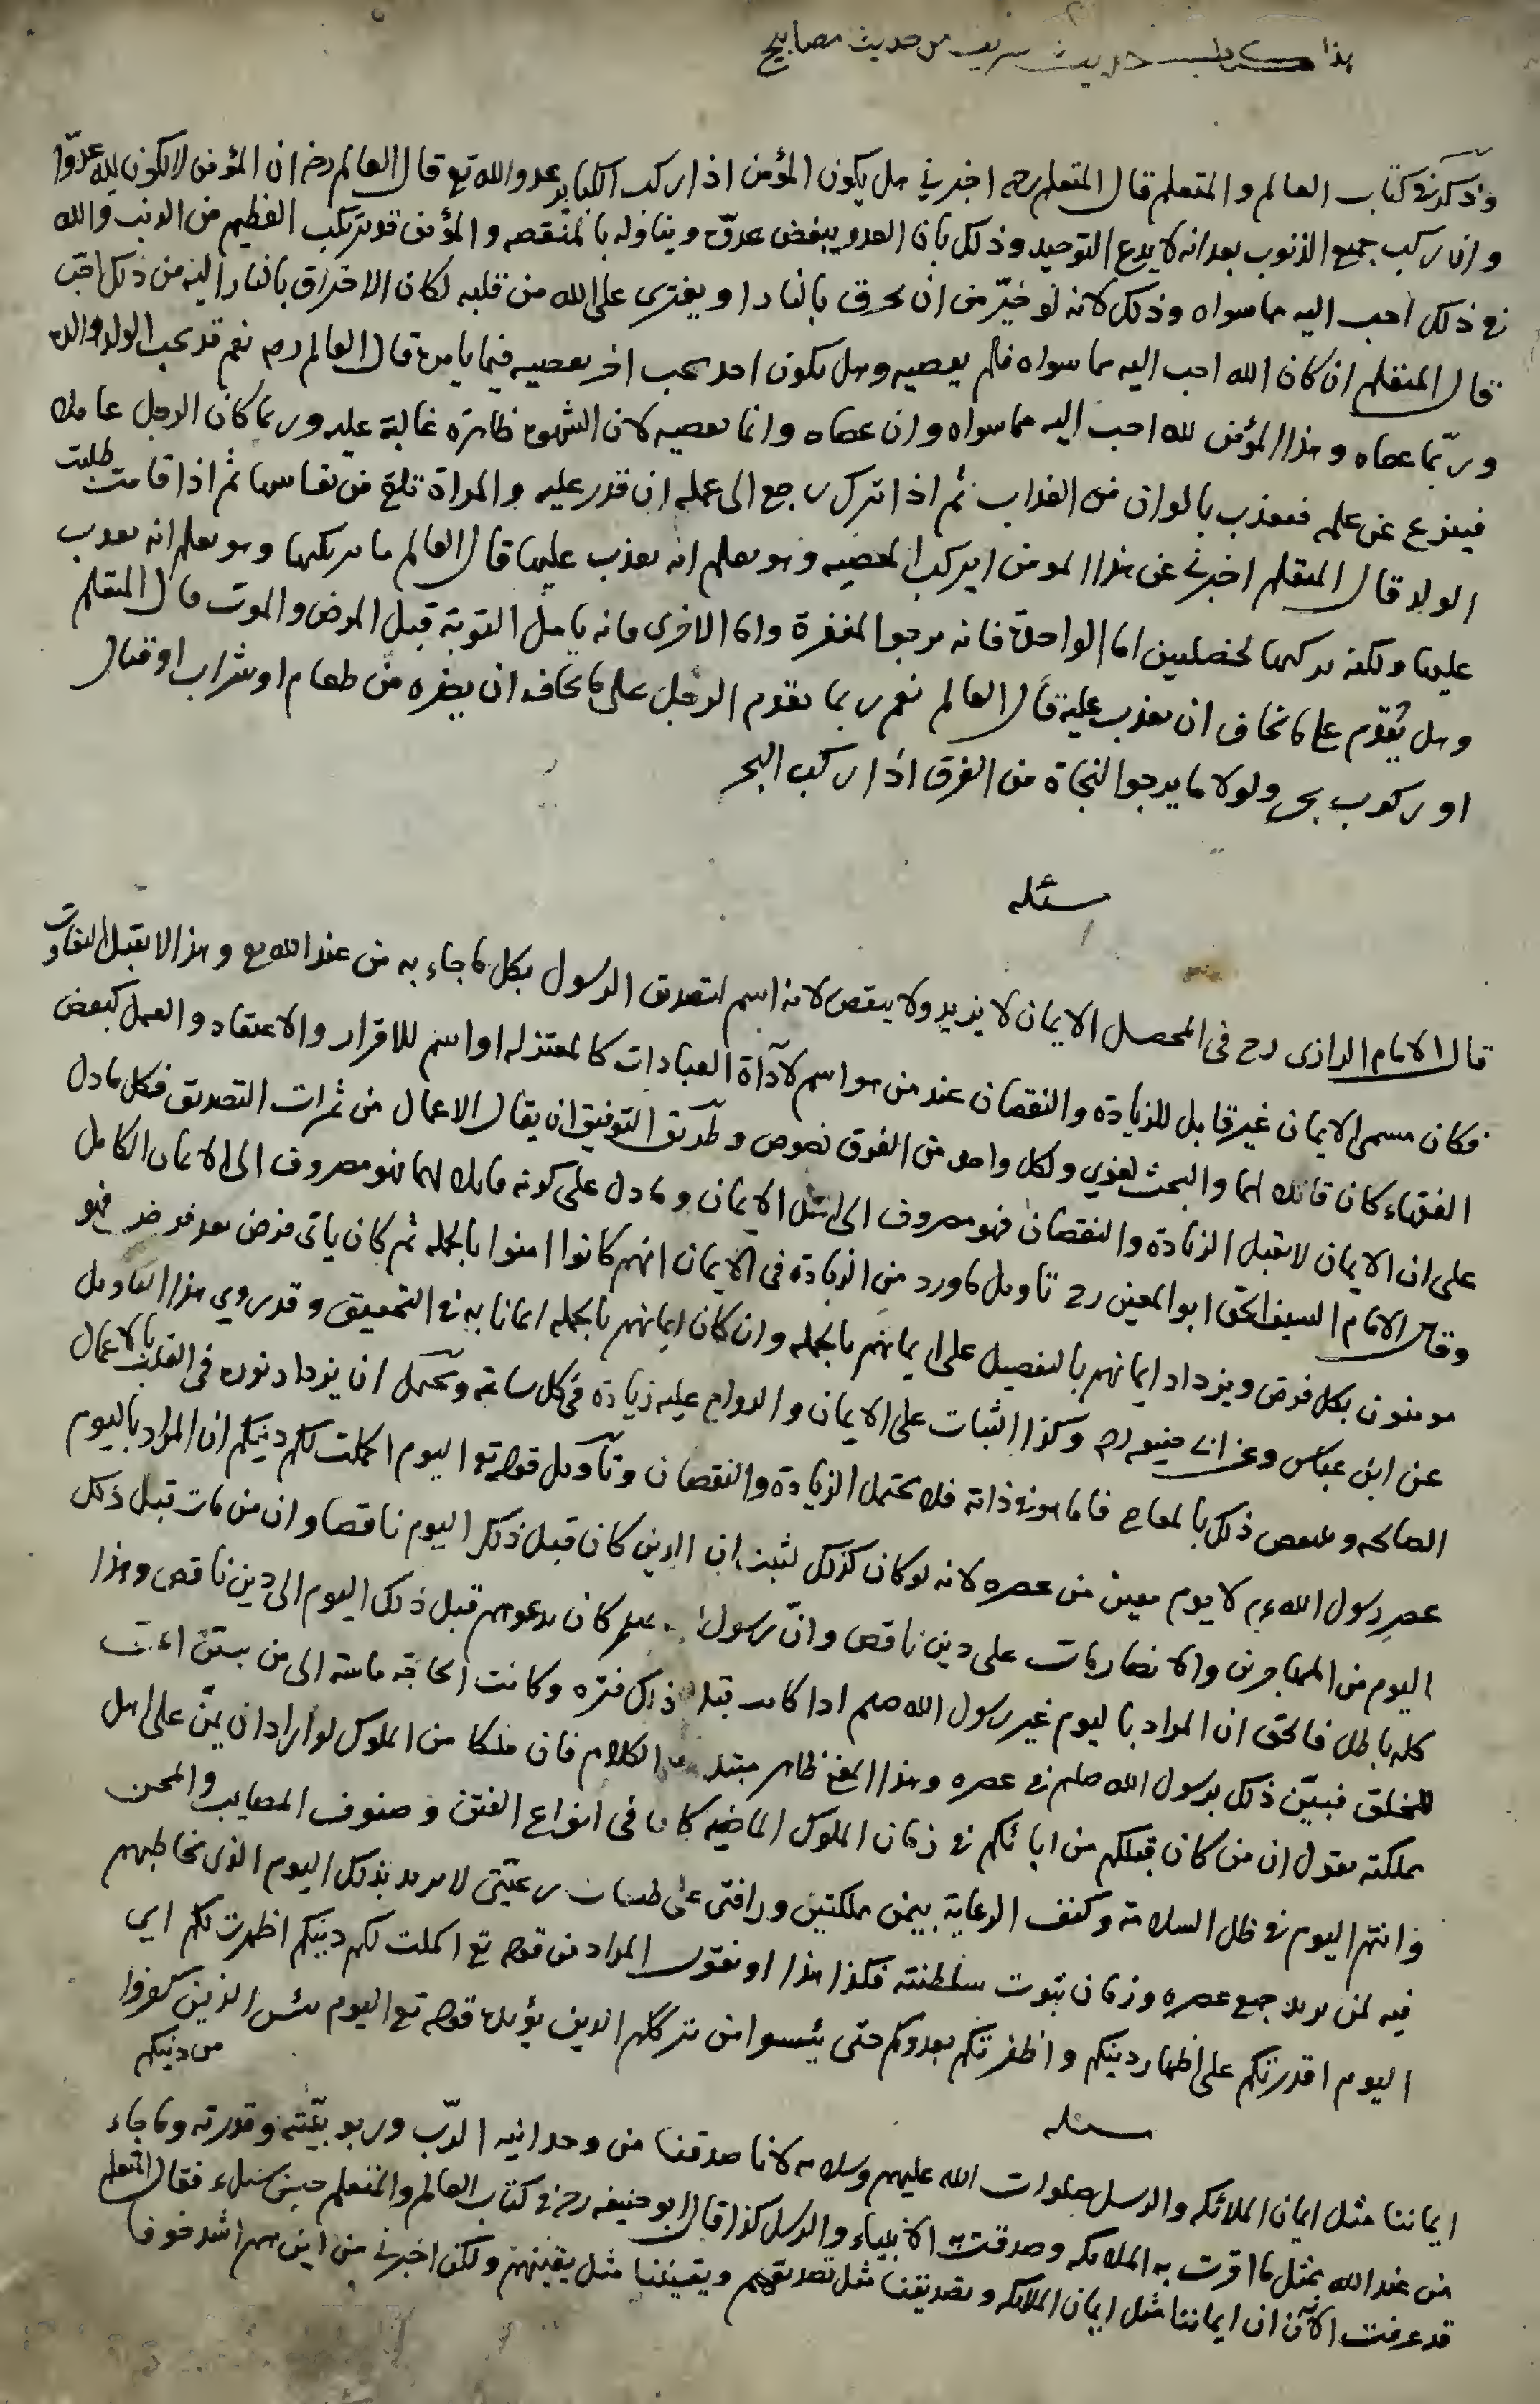 هذا كتاب حديث شريف من حديث مصابيح
وذكر في كتاب العالم والمتعلم قال المتعلم رحه اخبرني هل يكون المؤمن اذا ركب الكبائر عدو الله تع قال العالم رضه ان المؤمن لا يكون لله عدوّا
وان ركب جميع الذنوب بعد انه لا يدع التوحيد وذلك بان العدو يبغض عدوّه ويناوله بالمنقصه والمؤمن قد يرتكب العظيم من الذنب والله
في ذلك احب اليه مما سواه وذلك لانه لو خيّر من ان يحرق بالنار او يفترى على الله من قلبه لكان الاحتراق بالنار اليه من ذلك احبّ
قال المتعلم ان كان الله احب اليه مما سواه فلم يعصيه وهل يكون احد يحب اخر يعصيه فيما يامره قال العالم رحه نعم قد يحب الولد والده
وربّما عصاه وهذا المؤمن لله احب اليه مما سواه وان عصاه وانما يعصيه لان الشهوة ظاهرة غالبة عليه وربما كان الرجل عاملا
فينزع عن عمله فيعذب بالوان من العذاب ثم اذا ترك رجع الى عمله ان قدر عليه والمراة تلقى من نفاسها ثم اذا قامت طلبت
الولد قال المتعلم اخبرني عن هذا المومن ايركب المعصيه وهو يعلم انه يعذب عليها قال العالم ما يركبها وهو يعلم انه يعذب
عليها ولكنه يركبها لخصلتين اما الواحدة فانه يرجو المغفرة واما الاخرى فانه يامل التوبة قبل المرض والموت قال المتعلم
وهل يقدم على ما يخاف ان يعذب عليه قال العالم نعم ربما يقدم الرجل على ما يخاف ان يضره من طعام او شراب او قتال
او ركوب بحر ولولا ما يرجو النجاة من الغرق اذا ركب البحر
مسئله
قال الامام الرازى رح فى المحصل الايمان لا يزيد ولا ينقص لانه اسم لتصديق الرسول بكل ما جاء به من عند الله تع وهذا لا يقبل التفاوت
فكان مسمى الايمان غير قابل للزيادة والنقصان عند من هو اسم لآداة العبادات كالمعتزله او اسم للاقرار والاعتقاد والعمل كبعض
الفقهاء كان قابلا لهما والبحث لغوي ولكل واحد من الفرق نصوص وطريق التوفيق ان يقال الاعمال من ثمرات التصديق فكل ما دل
على ان الايمان لا يقبل الزيادة والنقصان فهو مصروف الى اصل الايمان وما دل على كونه قابلا لهما فهو مصروف الى الايمان الكامل
وقال الامام السيف الحق ابو المعين رح تاويل ما ورد من الزيادة فى الايمان انهم كانوا امنوا بالجمله ثم كان ياتى فرض بعد فرض فهو
مومنون بكل فرض ويزداد ايمانهم بالتفصيل على ايمانهم بالجمله وان كان ايمانهم بالجمله ايمانا به في التحقيق وقد روي هذا التاويل
عن ابن عباس وعن ابي حنيفه رحه وكذا الثبات على الايمان والدوام عليه زيادة في كل ساعة ويحتمل ان يزداد نوره فى القلب بالاعمال
الصالحه وينقص ذلك بالمعاصى فاما هو في ذاته فلا يحتمل الزيادة والنقصان وتاويل قوله تع اليوم اكملت لكم دينكم ان المراد باليوم
عصر رسول الله ع م لا يوم معين من عصره لانه لو كان كذلك لثبت ان الدين كان قبل ذلك اليوم ناقصا وان من مات قبل ذلك
اليوم من المهاجرين والانصار مات على دين ناقص وانّ رسول صلعم كان يدعوهم قبل ذلك اليوم الى دين ناقص وهذا
كله باطل فالحق ان المراد باليوم غير رسول الله صلعم اذا كانت قبل ذلك فتره وكانت الحاجة ماسة الى من
للخلق فبيّن ذلك برسول الله صلعم في عصره وهذا المعنى ظاهر الكلام فان ملكا من الملوك لو اراد ان يمنّ على اهل
مملكته يقول ان من كان قبلكم من ابائكم في زمان الملوك الماضيه كانوا فى انواع الفتن وصنوف المصايب والمحن
وانتم اليوم في ظل السلامة وكنف الرعاية بيمن مملكتى ورافتى على رعيّتى لا يريد بذلك اليوم الذى يخاطبهم
فيه لمن يريد جميع عصره وزمان ثبوت سلطنته فكذا هذا او نقول المراد من قوله تع اكملت لكم دينكم اظهرت لكم اي
اليوم اقدرتكم على اظهار دينكم واظفرتكم بعدوكم حتى يئسوا من ترككم الدين يؤيده قوله تع اليوم يئس الذين كفروا
من دينكم
مسئله
ايماننا مثل ايمان الملائكه والرسل صلوات الله عليهم وسلامه لانا صدقنا من وحدانيه الرّب وربوبيّته وقدرته وما جاء
من عند الله بمثل ما اقرت به الملائكه وصدقت به الانبياء والرسل كذا قال ابو حنيفه رحه في كتاب العالم والمتعلم حين سئل فقال المتعلم
قد عرفت الآن ان ايماننا مثل ايمان الملائكه وتصديقنا مثل تصديقهم ويقيننا مثل يقينهم ولكن اخبرني من اين هم اشد خوفا